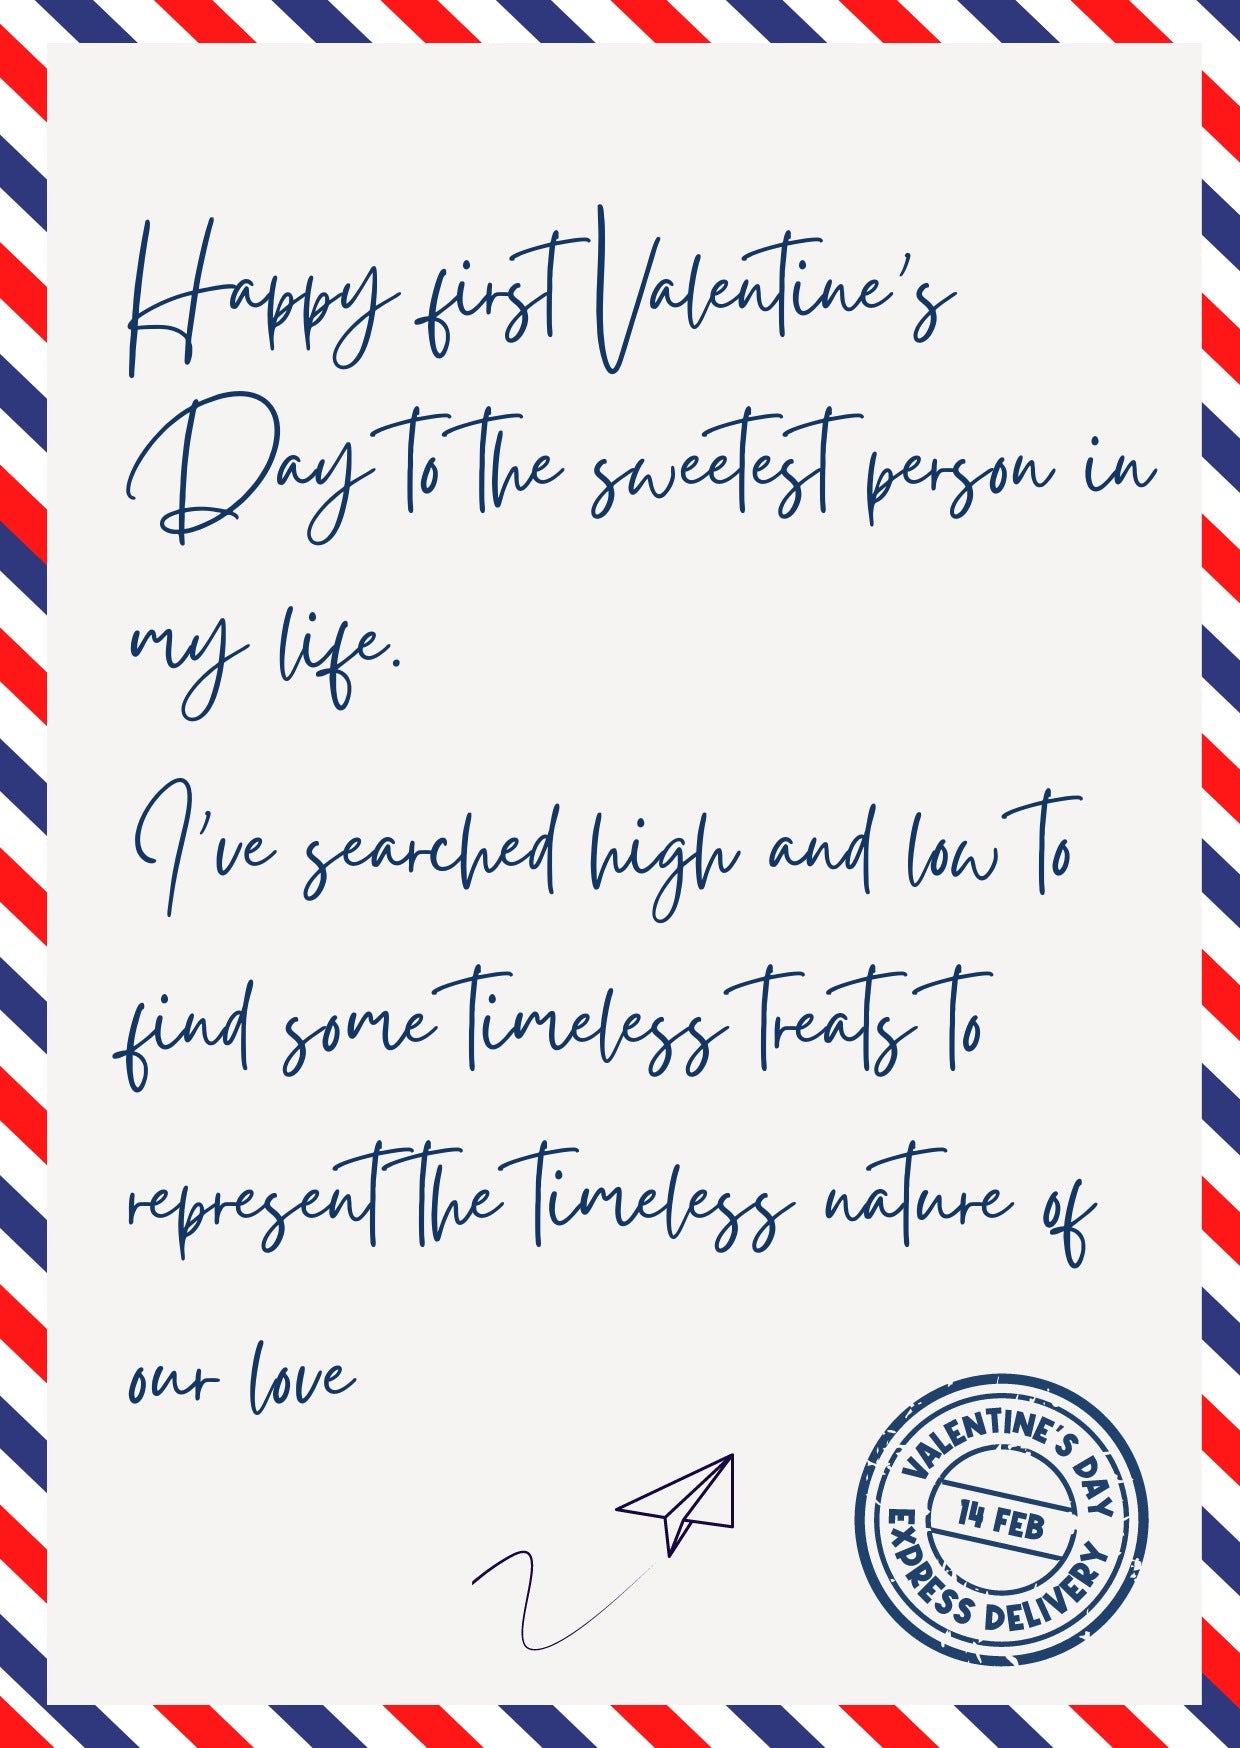 Happy first Valentine's
Day to the sweetest person in
my life.
I've searched high and low to
find some timeless treats to
represent the timeless nature of
our love
VALENTINE'S DAY
14 FEB
EXPRESS DELIVERY